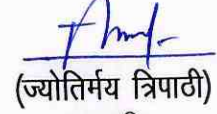 (ज्योतिर्मय त्रिपाठी)